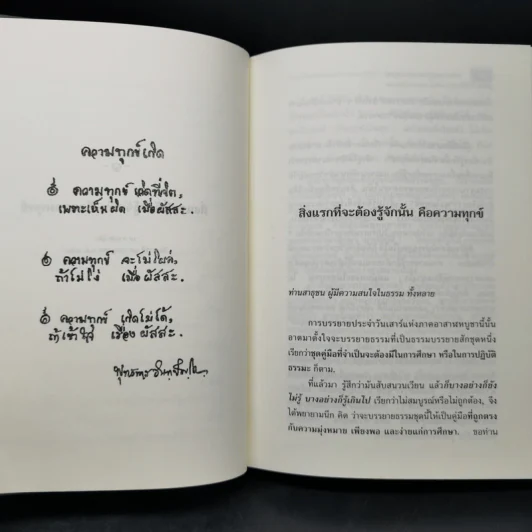 ความทุกข์เกิด
๏ ความทุกข์ เกิดที่จิต,
เพราะเห็นผิด เมื่อผัสสะ.
๏ ความทุกข์ จะไม่โผล่,
ถ้าไม่โง่ เมื่อผัสสะ.
๏ ความทุกข์ เกิดไม่ได้,
ถ้าเข้าใจ เรื่องผัสสะ.
พุทธทาส อินฺทปญฺโญ
สิ่งแรกที่จะต้องรู้จักนั้น คือความทุกข์
ท่านสาธุชน ผู้มีความสนใจในธรรม ทั้งหลาย
การบรรยายประจำวันเสาร์แห่งภาคอาสาฬหบูชานี้นั้น
อาตมาตั้งใจจะบรรยายธรรมะที่เป็นธรรมบรรยายสักชุดหนึ่ง
เรียกว่าชุดคู่มือที่จำเป็นจะต้องมีในการศึกษา หรือในการปฏิบัติ
ธรรมะ ก็ตาม.
ที่แล้วมา รู้สึกว่ามันสับสนวนเวียน แล้วก็บางอย่างก็ยัง
ไม่รู้ บางอย่างก็รู้เกินไป เรียกว่าไม่สมบูรณ์หรือไม่ถูกต้อง, จึง
ได้พยายามนึก คิด ว่าจะบรรยายธรรมชุดนี้ให้เป็นคู่มือที่ถูกตรง
กับความมุ่งหมาย เพียงพอ และง่ายแก่การศึกษา. ขอท่าน